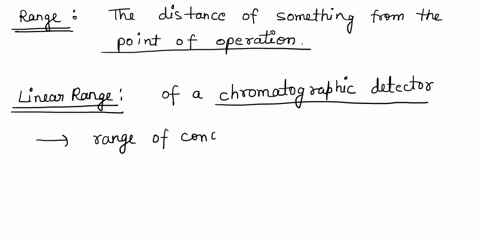 Range: The distance of something from the
point of operation.
Linear Range: of a chromatographic detector
→ range of conc